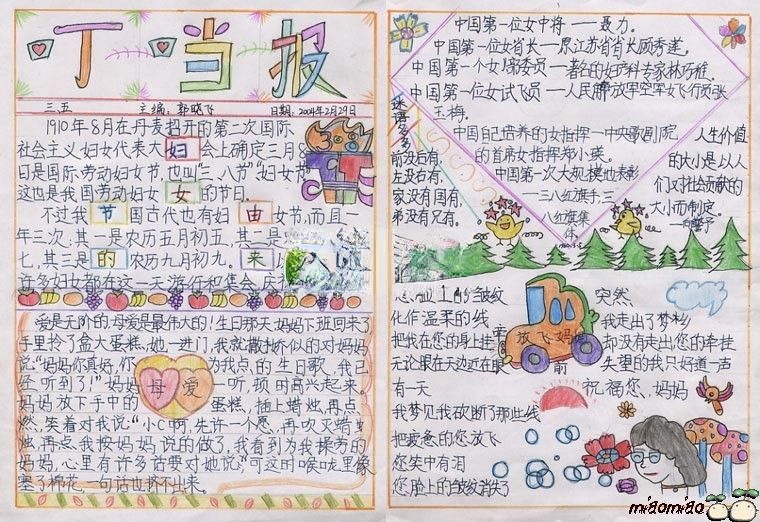 叮当报
三五 主编：郭晓飞 日期：2004年2月29日
1910年8月在丹麦召开的第二次国际
社会主义妇女代表大妇会上确定三月8
日是国际劳动妇女节，也叫"三八节""妇女节"
这也是我国劳动妇女女的节日。
不过我节国古代也有妇由女节，而且一
年三次：其一是农历五月初五，其二是
七，其三是的农历九月初九。来
许多妇女都在这一天游行和集会，庆
爱是无价的，母爱是最伟大的！生日那天，妈妈下班回来了，
手里拎了盒大蛋糕，她一进门，我就撒娇似的对妈妈
说："妈妈你真好，你为我点的生日歌，我已
经听到了！"妈妈母爱一听，顿时高兴起来。
妈妈放下手中的蛋糕，插上蜡烛，再点
燃，笑着对我说："小C啊，先许一个愿，再吹灭蜡
烛，再点，我按妈妈说的做了，我看到为我操劳的
妈妈，心里有许多话要对她说，可这时喉咙里像
塞了棉花，一句话也挤不出来。
中国第一位女中将——聂力。
中国第一位女省长——原江苏省省长顾秀莲。
中国第一个女主席委员——著名的妇产科专家林巧稚。
中国第一位女试飞员——人民解放军空军女飞行员张
玉梅。
中国自己培养的女指挥——中央歌剧院
的首席女指挥郑小英。
中国第一次大规模地表彰
——三八红旗手，三
八红旗集
体。
谜语多多
前没后有，
左没右有，
家没有国有，
弟没有兄有。
人生价值
的大小是以人
们对社会贡献的
大小而制定。
——向警予
心血上的皱纹
化作温柔的线
把我在您的身上挂牵
无论眼在天边近在眼前
有一天
我梦见我砍断了那些线
把疲惫的您放飞
您笑中有泪
您脸上的皱纹消失了
放飞妈妈
突然，
我走出了梦乡
却没有走出您的牵挂
失望的我只好道一声
祝福您，妈妈
miaomiao